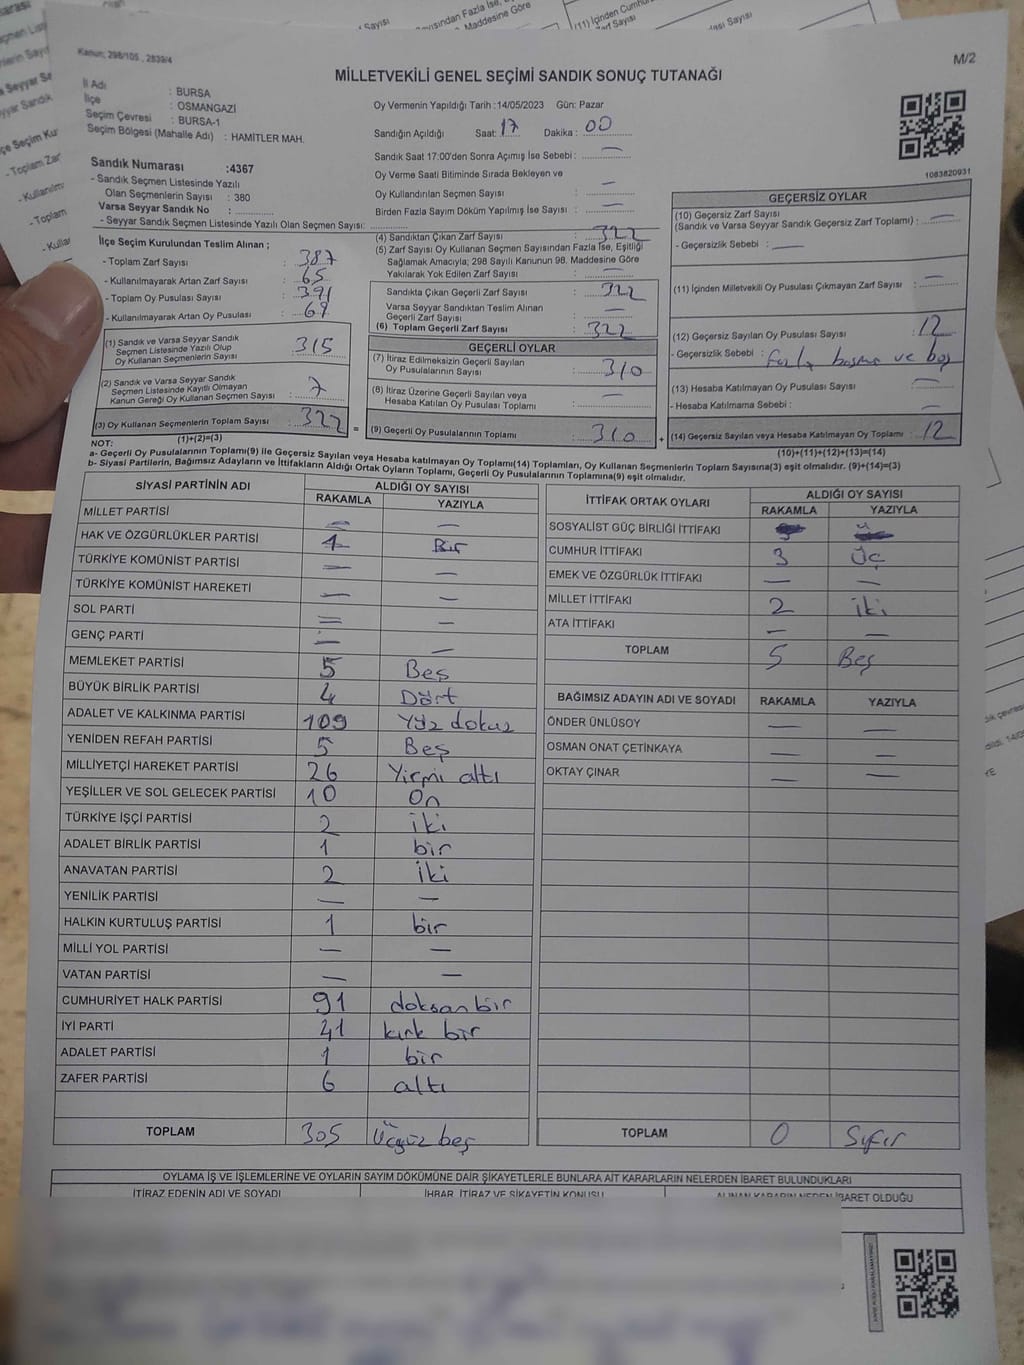 Kanun; 298/105 , 2839/4
M/2
MİLLETVEKİLİ GENEL SEÇİMİ SANDIK SONUÇ TUTANAĞI
İl Adı : BURSA
İlçe : OSMANGAZİ
Seçim Çevresi : BURSA-1
Seçim Bölgesi (Mahalle Adı) : HAMİTLER MAH.
Sandık Numarası :4367
- Sandık Seçmen Listesinde Yazılı
Olan Seçmenlerin Sayısı : 380
Varsa Seyyar Sandık No :
- Seyyar Seçmen Listesinde Yazılı Olan Seçmen Sayısı:
Oy Vermenin Yapıldığı Tarih :14/05/2023 Gün: Pazar
Sandığın Açıldığı Saat: 17 Dakika : 00
Sandık Saat 17:00'den Sonra Açımış İse Sebebi : —
Oy Verme Saati Bitiminde Sırada Bekleyen ve
Oy Kullandırılan Seçmen Sayısı : —
Birden Fazla Sayım Döküm Yapılmış İse Sayısı : —
1083820931
İlçe Seçim Kurulundan Teslim Alınan ;
- Toplam Zarf Sayısı : 387
- Kullanılmayarak Artan Zarf Sayısı : 65
- Toplam Oy Pusulası Sayısı : 391
- Kullanılmayarak Artan Oy Pusulası : 69
(1) Sandık ve Varsa Seyyar Sandık
Seçmen Listesinde Yazılı Olup
Oy Kullanan Seçmenlerin Sayısı : 315
(2) Sandık ve Varsa Seyyar Sandık
Seçmen Listesinde Kayıtlı Olmayan
Kanun Gereği Oy Kullanan Seçmen Sayısı : 7
(3) Oy Kullanan Seçmenlerin Toplam Sayısı : 322
(1)+(2)=(3)
(4) Sandıktan Çıkan Zarf Sayısı : 322
(5) Zarf Sayısı Oy Kullanan Seçmen Sayısından Fazla İse, Eşitliği
Sağlamak Amacıyla; 298 Sayılı Kanunun 98. Maddesine Göre
Yakılarak Yok Edilen Zarf Sayısı : —
Sandıkta Çıkan Geçerli Zarf Sayısı : 322
Varsa Seyyar Sandıktan Teslim Alınan
Geçerli Zarf Sayısı : —
(6) Toplam Geçerli Zarf Sayısı : 322
GEÇERLİ OYLAR
(7) İtiraz Edilmeksizin Geçerli Sayılan
Oy Pusulalarının Sayısı : 310
(8) İtiraz Üzerine Geçerli Sayılan veya
Hesaba Katılan Oy Pusulası Toplamı : —
= (9) Geçerli Oy Pusulalarının Toplamı : 310 +
GEÇERSİZ OYLAR
(10) Geçersiz Zarf Sayısı
(Sandık ve Varsa Seyyar Sandık Geçersiz Zarf Toplamı) : —
- Geçersizlik Sebebi : —
(11) İçinden Milletvekili Oy Pusulası Çıkmayan Zarf Sayısı : —
(12) Geçersiz Sayılan Oy Pusulası Sayısı : 12
- Geçersizlik Sebebi : fazla basma ve boş
(13) Hesaba Katılmayan Oy Pusulası Sayısı : —
- Hesaba Katılmama Sebebi : —
(14) Geçersiz Sayılan veya Hesaba Katılmayan Oy Toplamı : 12
(10)+(11)+(12)+(13)=(14)
NOT:
a- Geçerli Oy Pusulalarının Toplamı(9) ile Geçersiz Sayılan veya Hesaba katılmayan Oy Toplamı(14) Toplamları, Oy Kullanan Seçmenlerin Toplam Sayısına(3) eşit olmalıdır. (9)+(14)=(3)
b- Siyasi Partilerin, Bağımsız Adayların ve İttifakların Aldığı Ortak Oyların Toplamı, Geçerli Oy Pusulalarının Toplamına(9) eşit olmalıdır.
SİYASİ PARTİNİN ADI ALDIĞI OY SAYISI
RAKAMLA YAZIYLA
MİLLET PARTİSİ — —
HAK VE ÖZGÜRLÜKLER PARTİSİ 1 Bir
TÜRKİYE KOMÜNİST PARTİSİ — —
TÜRKİYE KOMÜNİST HAREKETİ — —
SOL PARTİ — —
GENÇ PARTİ — —
MEMLEKET PARTİSİ 5 Beş
BÜYÜK BİRLİK PARTİSİ 4 Dört
ADALET VE KALKINMA PARTİSİ 109 Yüz dokuz
YENİDEN REFAH PARTİSİ 5 Beş
MİLLİYETÇİ HAREKET PARTİSİ 26 Yirmi altı
YEŞİLLER VE SOL GELECEK PARTİSİ 10 On
TÜRKİYE İŞÇİ PARTİSİ 2 iki
ADALET BİRLİK PARTİSİ 1 bir
ANAVATAN PARTİSİ 2 İki
YENİLİK PARTİSİ — —
HALKIN KURTULUŞ PARTİSİ 1 bir
MİLLİ YOL PARTİSİ — —
VATAN PARTİSİ — —
CUMHURİYET HALK PARTİSİ 91 doksan bir
İYİ PARTİ 41 kırk bir
ADALET PARTİSİ 1 bir
ZAFER PARTİSİ 6 altı
TOPLAM 305 Üçyüz beş
İTTİFAK ORTAK OYLARI ALDIĞI OY SAYISI
RAKAMLA YAZIYLA
SOSYALİST GÜÇ BİRLİĞİ İTTİFAKI
CUMHUR İTTİFAKI 3 Üç
EMEK VE ÖZGÜRLÜK İTTİFAKI — —
MİLLET İTTİFAKI 2 iki
ATA İTTİFAKI — —
TOPLAM 5 Beş
BAĞIMSIZ ADAYIN ADI VE SOYADI RAKAMLA YAZIYLA
ÖNDER ÜNLÜSOY — —
OSMAN ONAT ÇETİNKAYA — —
OKTAY ÇINAR — —
TOPLAM 0 Sıfır
OYLAMA İŞ VE İŞLEMLERİNE VE OYLARIN SAYIM DÖKÜMÜNE DAİR ŞİKAYETLERLE BUNLARA AİT KARARLARIN NELERDEN İBARET BULUNDUKLARI
İTİRAZ EDENİN ADI VE SOYADI İHBAR, İTİRAZ VE ŞİKAYETİN KONUSU ALINAN KARARIN NEDEN İBARET OLDUĞU